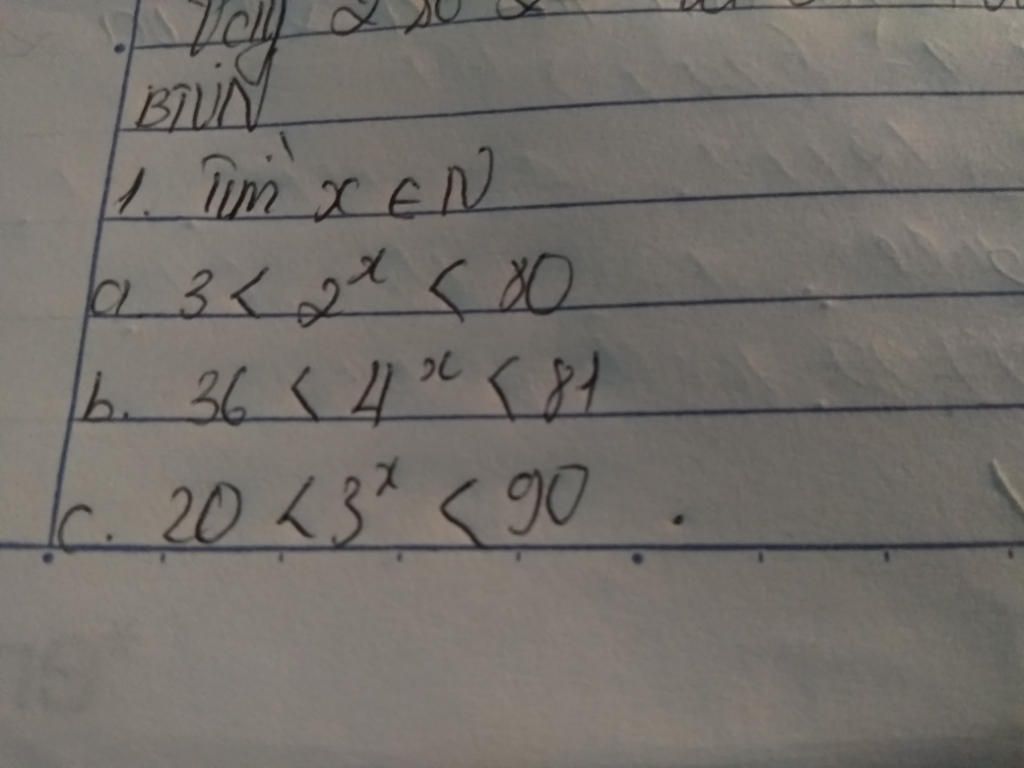 Vậy 2
BTVN
1. Tìm x ∈ N
a. 3 < 2^x < 80
b. 36 < 4^x < 81
c. 20 < 3^x < 90.